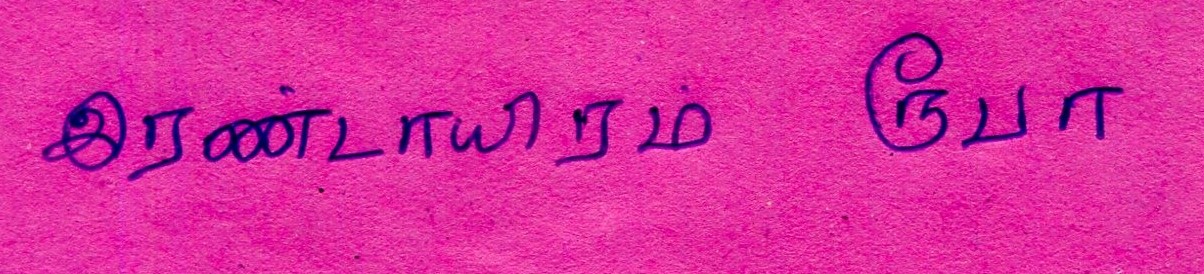 இரண்டாயிரம் ரூபா